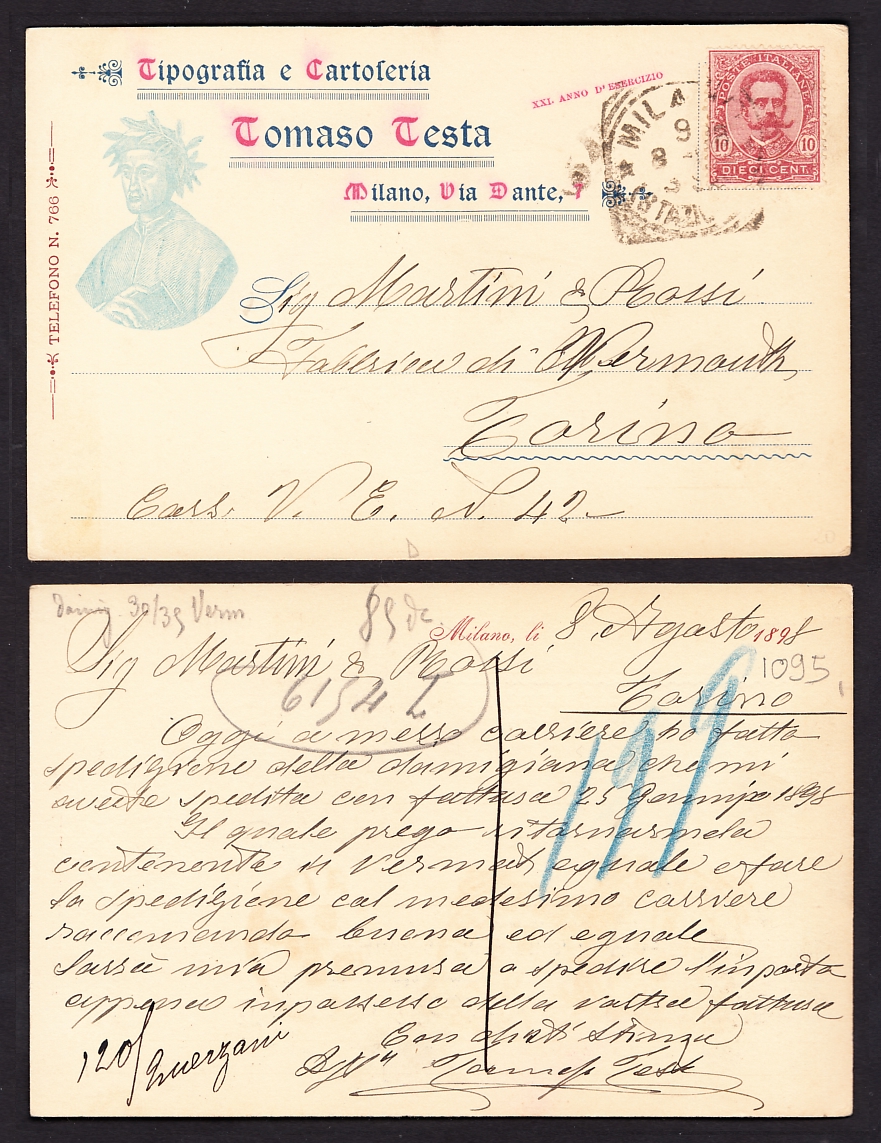 Tipografia e Cartoleria
XXI. ANNO D'ESERCIZIO
Tomaso Testa
Milano, Via Dante, 7
TELEFONO N. 766
POSTE ITALIANE
10 10
DIECI CENT.
MILA
9
8
Sig Martini & Rossi
Fabbrica di Wermouth
Torino
Cors. V. E. N. 42
D
30/35 Verm
85 dc
Milano, li 8 Agosto 1898
Sig Martini & Rossi
1095
6154 I
Torino
199
Oggi a mezzo carriere ho fatto
spedizione della damigiana che mi
avete spedita con fattura 25 1898
Il quale prego ritornarmela
contenente il Vermout eguale e fare
la spedizione col medesimo carriere
raccomando buona ed eguale
Sarrà mia premura a spedire l'inporto
appena inpossesso della vostra fattura
Con stima
120/ Guerzani
Tomaso Testa